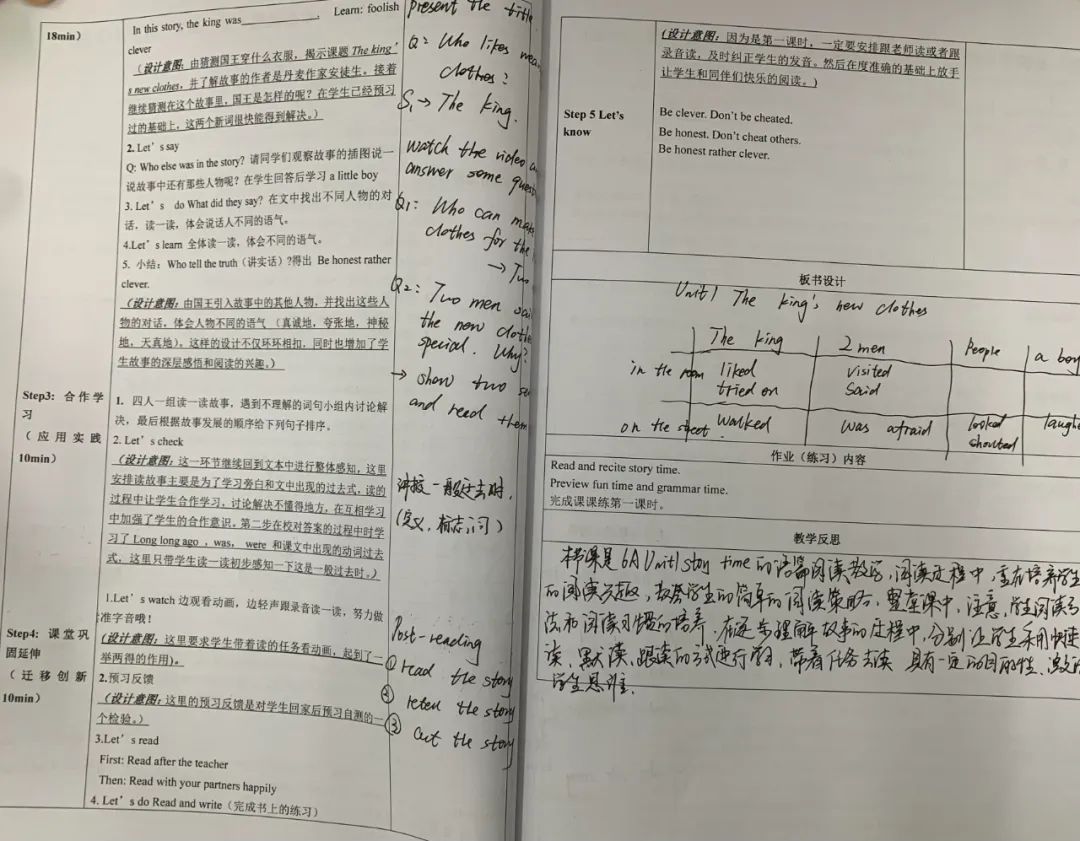 18min）
In this story, the king was____________. Learn: foolish
clever
（设计意图：由猜测国王穿什么衣服，揭示课题 The king'
s new clothes，并了解故事的作者是丹麦作家安徒生。接着
继续猜测在这个故事里，国王是怎样的呢？在学生已经预习
过的基础上，这两个新词很快能得到解决。）
2. Let's say
Q: Who else was in the story? 请同学们观察故事的插图说一
说故事中还有那些人物呢？在学生回答后学习 a little boy
3. Let's do What did they say? 在文中找出不同人物的对
话，读一读，体会说话人不同的语气。
4.Let's learn 全体读一读，体会不同的语气。
5. 小结：Who tell the truth（讲实话）?得出 Be honest rather
clever.
（设计意图：由国王引入故事中的其他人物，并找出这些人
物的对话，体会人物不同的语气（真诚地，夸张地，神秘
地，天真地）。这样的设计不仅环环相扣，同时也增加了学
生故事的深层感悟和阅读的兴趣。）
Step3: 合作学
习
（应用实践
10min）
1. 四人一组读一读故事，遇到不理解的词句小组内讨论解
决，最后根据故事发展的顺序给下列句子排序。
2. Let's check
（设计意图：这一环节继续回到文本中进行整体感知，这里
安排读故事主要是为了学习旁白和文中出现的过去式，读的
过程中让学生合作学习，讨论解决不懂得地方，在互相学习
中加强了学生的合作意识。第二步在校对答案的过程中时学
习了 Long long ago，was，were 和课文中出现的动词过去
式，这里只带学生读一读初步感知一下这是一般过去时。）
Step4: 课堂巩
固延伸
（迁移创新
10min）
1.Let's watch 边观看动画，边轻声跟录音读一读，努力做
准字音哦！
（设计意图：这里要求学生带着读的任务看动画，起到了一
举两得的作用）。
2.预习反馈
（设计意图：这里的预习反馈是对学生回家后预习自测的一
个检验。）
3.Let's read
First: Read after the teacher
Then: Read with your partners happily
4. Let's do Read and write（完成书上的练习）
present the title
Q: Who likes
clothes?
S₁→ The king.
watch the video
answer some
Q₁: Who can
clothes for the
→
Q₂: Two men
the new
special. Why?
→ show two
and read them
讲授一般过去时.
(定义, 标志词)
Post-reading
① read the story
② retell the story
③ act the story
（设计意图：因为是第一课时，一定要安排跟老师读或者跟
录音读，及时纠正学生的发音。然后在度准确的基础上放手
让学生和同伴们快乐的阅读。)
Step 5 Let's
know
Be clever. Don't be cheated.
Be honest. Don't cheat others.
Be honest rather clever.
板书设计
Unit 1 The king's new clothes
The king 2 men People a boy
in the room liked visited
tried on said
on the street walked was afraid looked
shouted
作业（练习）内容
Read and recite story time.
Preview fun time and grammar time.
完成课课练第一课时。
教学反思
本节课是 6A Unit1 story time 的语篇阅读教学, 阅读过程中, 重在培养学生
的阅读兴趣, 教给学生的简单的阅读策略, 整堂课中, 注意学生阅读方
法和阅读习惯的培养. 在逐步理解故事的过程中, 分别让学生采用快速
读, 默读, 跟读的方式进行学习, 带着任务去读 具有一定的目的性, 激发
学生思维.